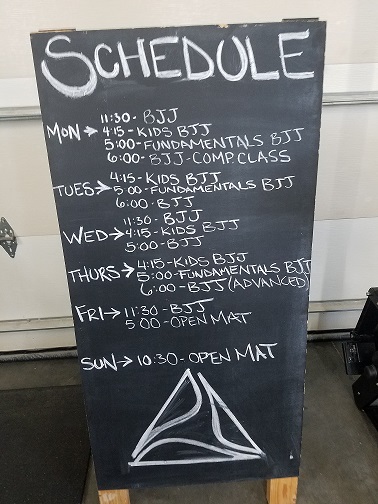 SCHEDULE
11:30- BJJ
MON→ 4:15- KIDS BJJ
5:00- FUNDAMENTALS BJJ
6:00- BJJ-COMP. CLASS
4:15- KIDS BJJ
TUES→ 5:00- FUNDAMENTALS BJJ
6:00- BJJ
11:30- BJJ
WED→ 4:15- KIDS BJJ
5:00- BJJ
4:15- KIDS BJJ
THURS→ 5:00- FUNDAMENTALS BJJ
6:00- BJJ (ADVANCED)
FRI→ 11:30- BJJ
5:00- OPEN MAT
SUN→ 10:30- OPEN MAT